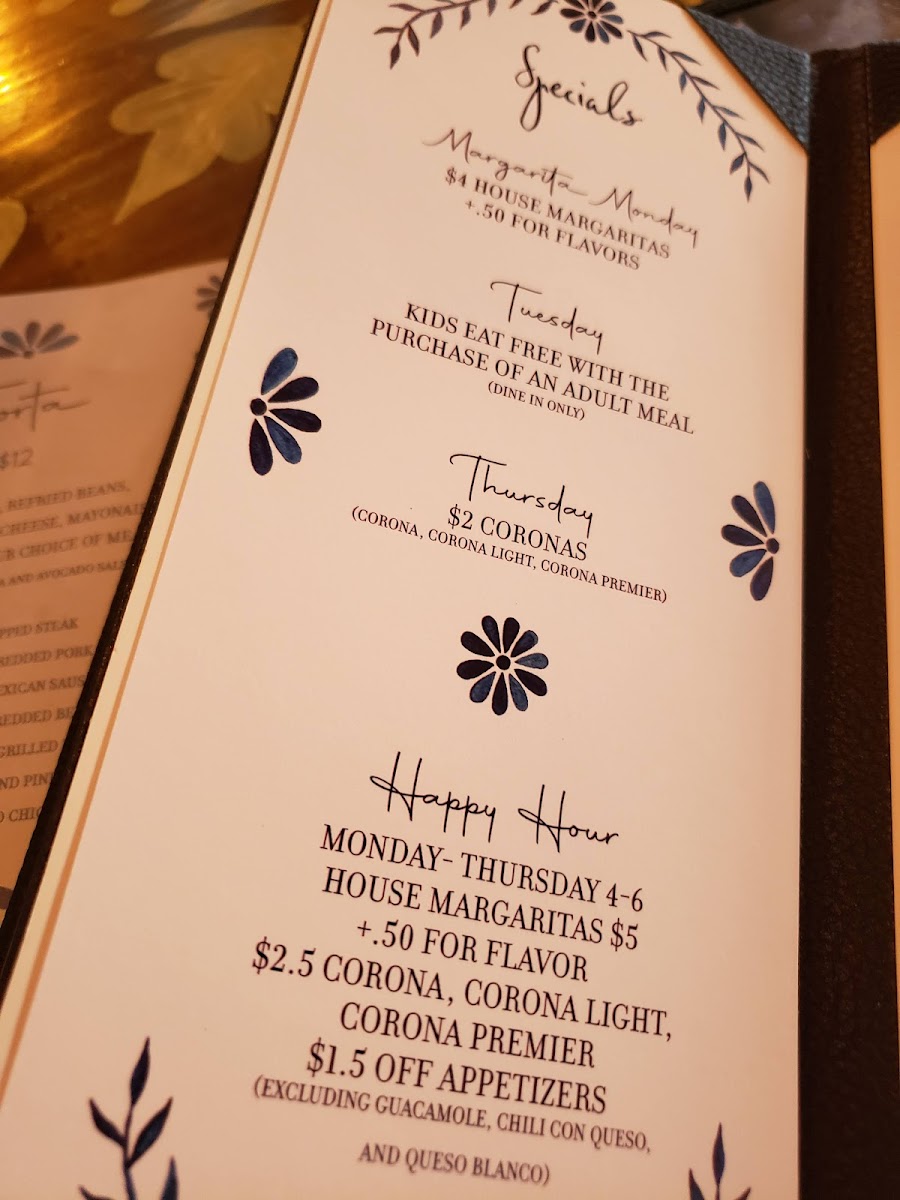 Specials
Margarita Monday
$4 HOUSE MARGARITAS
+.50 FOR FLAVORS
Tuesday
KIDS EAT FREE WITH THE
PURCHASE OF AN ADULT MEAL
(DINE IN ONLY)
Thursday
$2 CORONAS
(CORONA, CORONA LIGHT, CORONA PREMIER)
Happy Hour
MONDAY- THURSDAY 4-6
HOUSE MARGARITAS $5
+.50 FOR FLAVOR
$2.5 CORONA, CORONA LIGHT,
CORONA PREMIER
$1.5 OFF APPETIZERS
(EXCLUDING GUACAMOLE, CHILI CON QUESO,
AND QUESO BLANCO)
$12
REFRIED BEANS,
CHEESE,
CHOICE OF
AND AVOCADO
STEAK
PORK
GRILLED